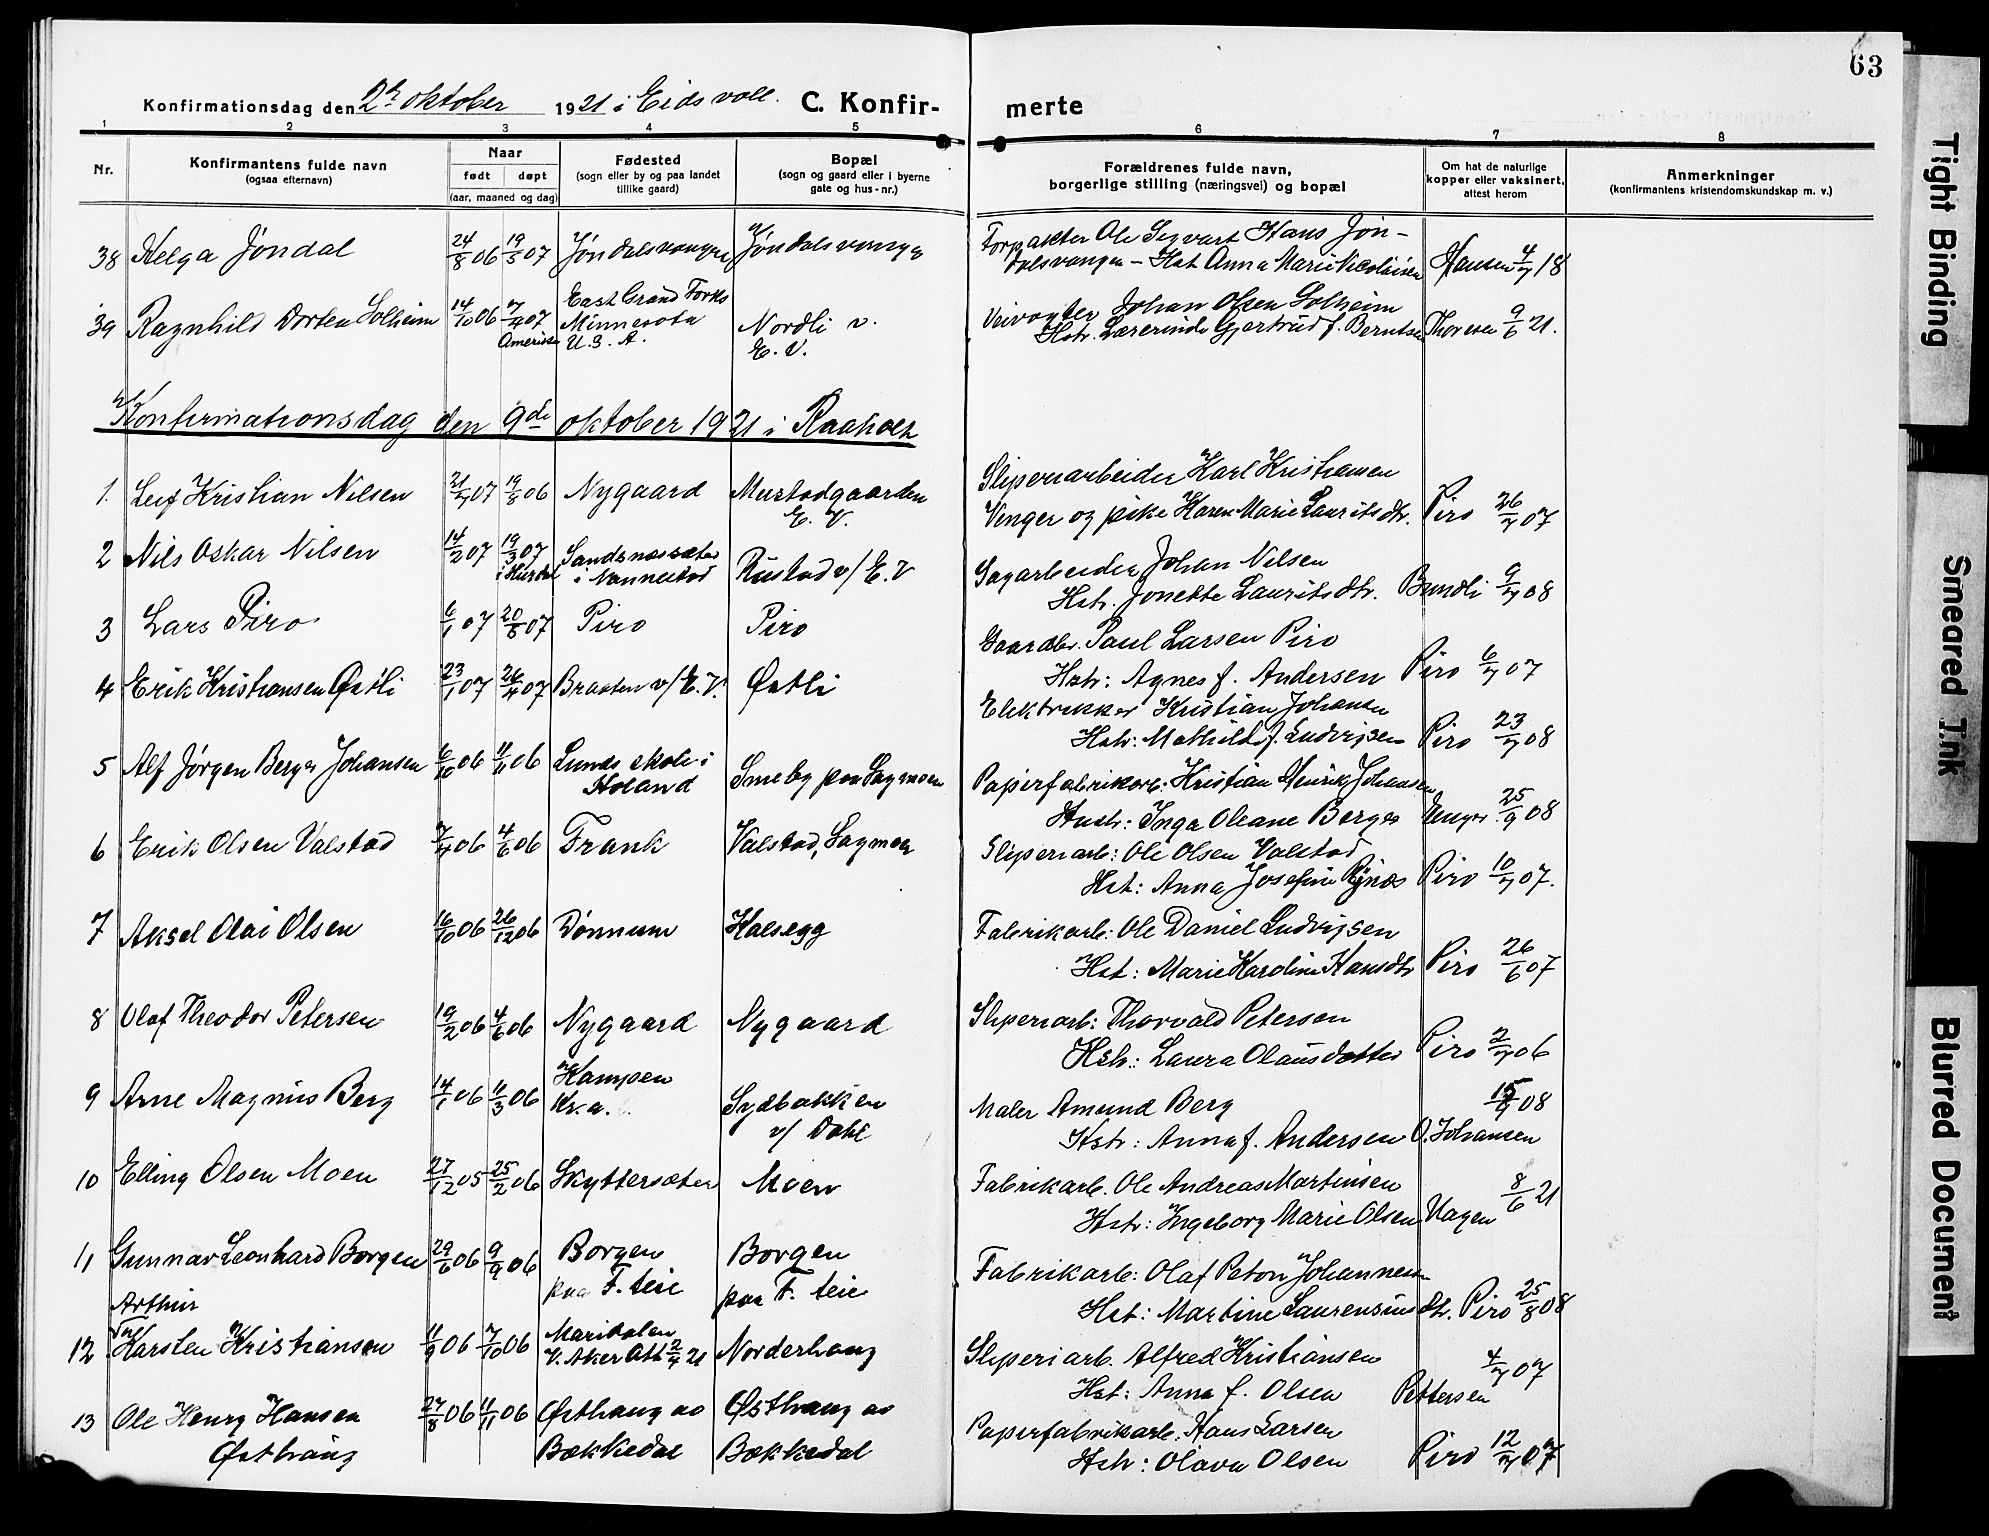 63
Konfirmationsdag den 2de oktober 1921 i Eidsvoll. C. Konfir-
merte
1 2 3 4 5 6 7 8
Nr.
Konfirmantens fulde navn
(ogsaa efternavn)
Naar
født døpt
(aar, maaned og dag)
Fødested
(sogn eller by og paa landet
tillike gaard)
Bopæl
(sogn og gaard eller i byerne
gate og hus-nr.)
Forældrenes fulde navn,
borgerlige stilling (næringsvei) og bopæl
Om hat de naturlige
kopper eller vaksinert,
attest herom
Anmerkninger
(konfirmantens kristendomskundskap m. v.)
38 Helga Jøndal 24/8 06 19/5 07 Jøndalsvangen Jøndalsvangen
Forpakter Ole Sigvart Hans Jøn-
dalsvangen - Hst Anna Marie Nicolaisen Hansen 4/7 18
39 Ragnhild Dortea Solheim 14/10 06 7/4 07 Amerika
East Grand Forks
Minnesota
U.S.A.
Nordli v.
E.V.
Veivogter Johan Olsen Solheim
Hstr. Lærerinde Gjertrud f. Berntsen Thoresen 9/6 21.
Konfirmationsdag den 9de oktober 1921 i Raaholt
1. Leif Kristian Nilsen 21/4 07 19/8 06 Nygaard Mustadgaarden
E.V.
Sliperiarbeider Karl Kristiansen
Venger og pike Karen Marie Lauritsdtr. Piro 26/7 07
2 Nils Oskar Nilsen 14/2 07 19/3 07 i Hurdal
Sandsnessæter
i Nannestad
Rustad v/ E.V
Sagarbeider Johan Nilsen
Hstr. Jonette Lauritsdtr. Bundli 9/7 08
3 Lars Piro 6/1 07 20/8 07 Piro Piro
Gaardbr. Paul Larsen Piro
Hstr: Agnes f. Andersen Piro 6/7 07
4 Erik Kristiansen Østli 23/1 07 26/4 07 Braaten v/ E.V. Østli
Elektrikker Kristian Johansen
Hstr: Mathilde f. Ludvigsen Piro 23/7 08
5 Alf Jørgen Berger Johansen 6/10 06 11/11 06 Lunds skole i
Høland
Smeby paa Sagmoen
Papirfabrikarb: Kristian Henrik Johansen
Hustr: Inga Oleane Berger Unger 25/9 08
6 Erik Olsen Valstad 7/4 06 4/6 06 Frank Valstad, Sagmoen
Sliperiarb: Ole Olsen Valstad
Hst: Anna Josefine Rynæs Piro 10/7 07.
7 Aksel Olai Olsen 16/10 06 26/12 06 Dønnum Halsegg
Fabrikarb: Ole Daniel Ludvigsen
Hst: Marie Karoline Hansdtr Piro 26/6 07
8 Olaf Theodor Petersen 19/2 06 4/6 06 Nygaard Nygaard
Sliperiarb: Thorvald Petersen
Hstr: Laura Olausdatter Piro 2/7 06
9 Arne Magnus Berg 14/1 06 11/3 06 Kampen
Kr.a.
Sydbakken
v/ Dahl
Maler Amund Berg 15/9 08
Hstr: Anna f. Andersen O. Johansen
10 Elling Olsen Moen 27/12 05 25/2 06 Skyttersæter Moen
Fabrikarb. Ole Andreas Martinsen
Hstr: Ingeborg Marie Olsen Hagen 8/6 21
11 Gunnar Leonhard Borgen 29/6 06 9/9 06 Borgen
paa F. teie
Borgen
paa F. teie
Fabrikarb: Olaf Peton Johannesen
Hst: Martine Laurensius dtr. Piro 25/8 08
Arthur
12 Karsten Kristiansen 11/9 06 7/10 06
Maridalen
V. Aker Att 2/7 21
Norderhaug
Sliperiarb. Alfred Kristiansen
Hst: Anna f. Olsen Pettersen 4/7 07
13 Ole Henry Hansen
Østhaug
27/8 06 11/11 06 Østhaug av
Bækkedal
Østhaug av
Bækkedal
Papirfabrikarb. Hans Larsen
Hstr: Olava Olsen Piro 12/7 07
Tight Binding
Smeared Ink
Blurred Document